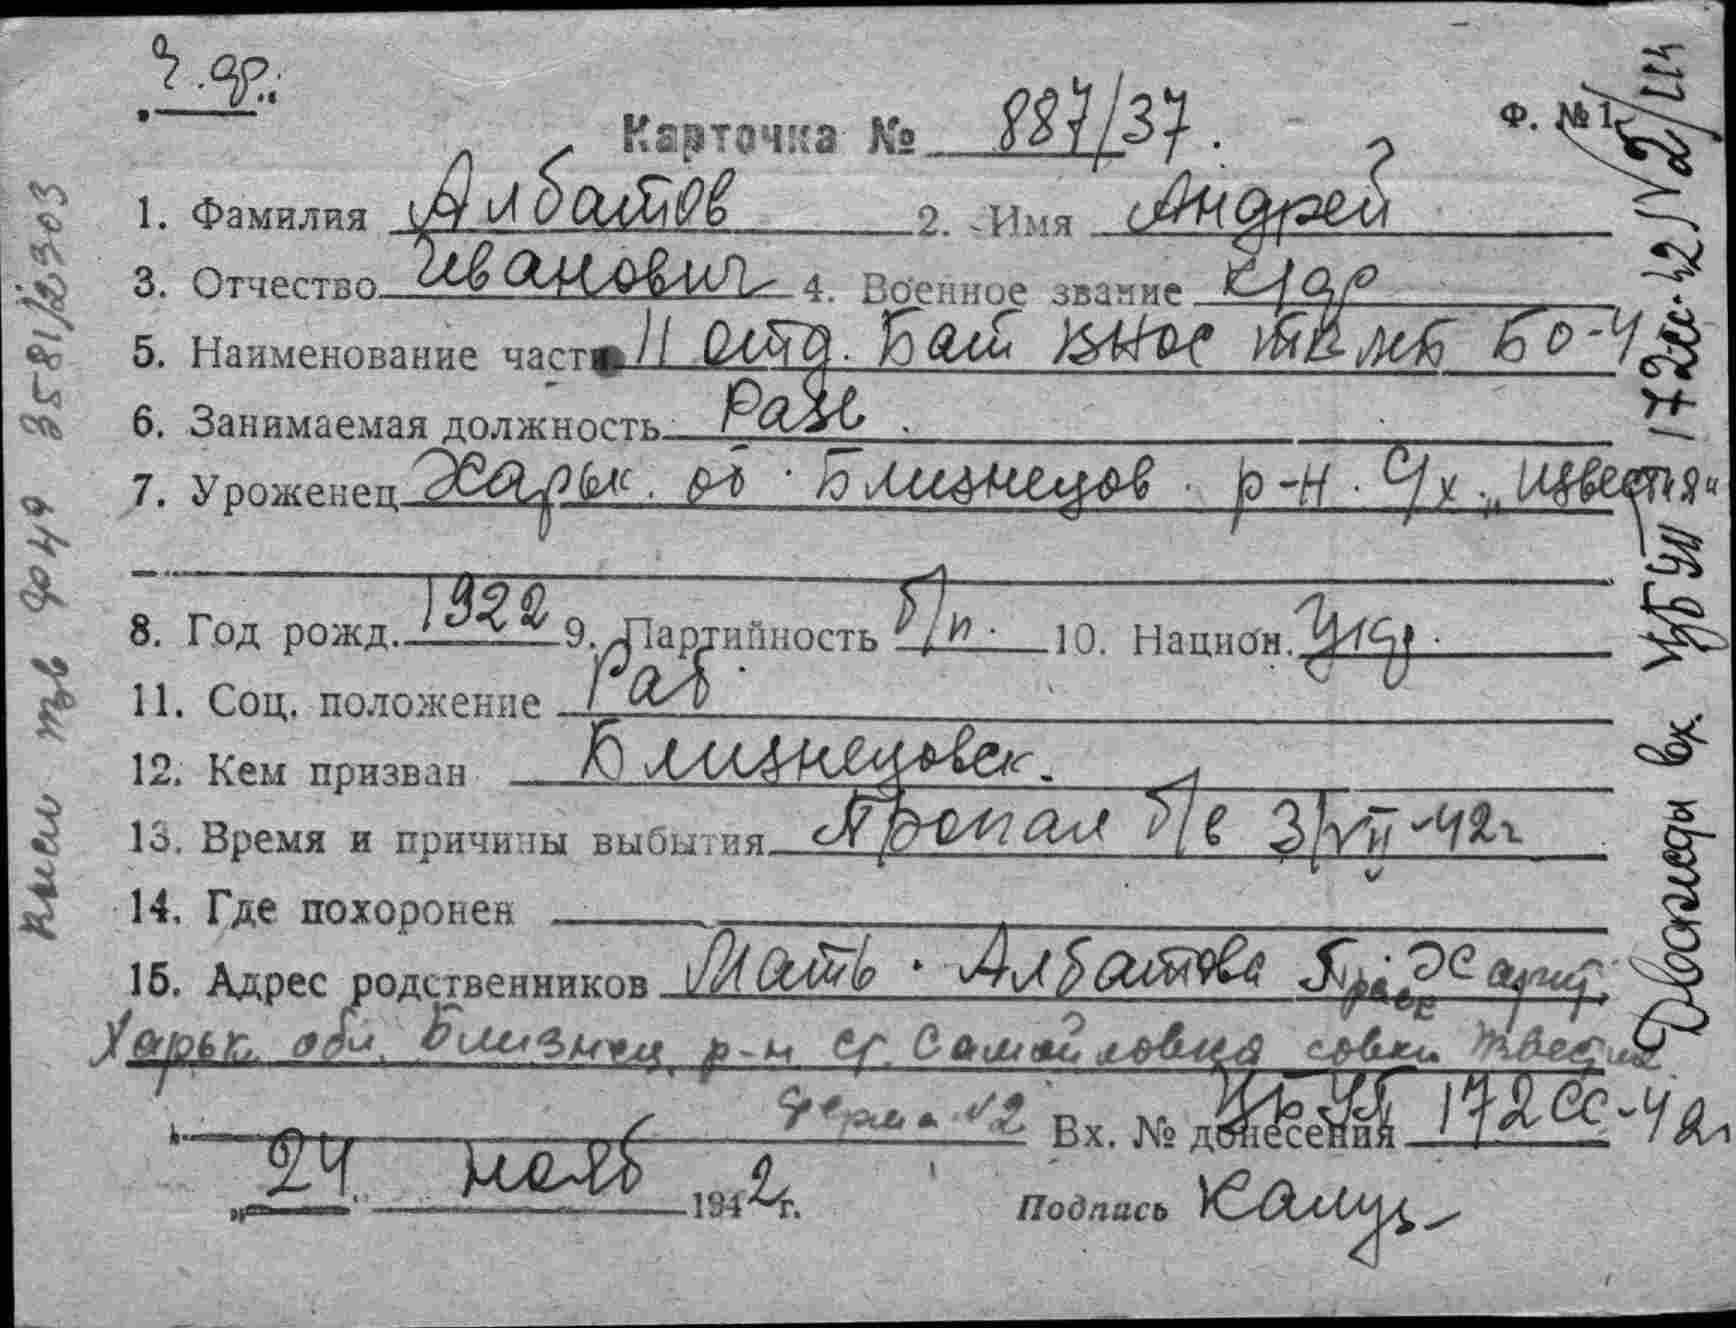 Ф. № 1
Карточка № 887/37.
1. Фамилия Албатов 2. Имя Андрей
3. Отчество Иванович 4. Военное звание к/др
5. Наименование части 11 отд. Бат ВНОС
6. Занимаемая должность Разв.
7. Уроженец Харьк. об. Близнецов. р-н. С/х. „Известия“
8. Год рожд. 1922 9. Партийность б/п. 10. Национ. Укр.
11. Соц. положение Раб
12. Кем призван Близнецовск.
13. Время и причины выбытия Пропал б/в 3/VII-42г
14. Где похоронен
15. Адрес родственников Мать. Албатова Праск Харит.
Харьк обл. Близнец. р-н ст. Самойловка совхоз Известия
Ферма №2 Вх. № донесения 172сс-42г
„24 нояб 1942г. Подпись
вх. 172сс-42